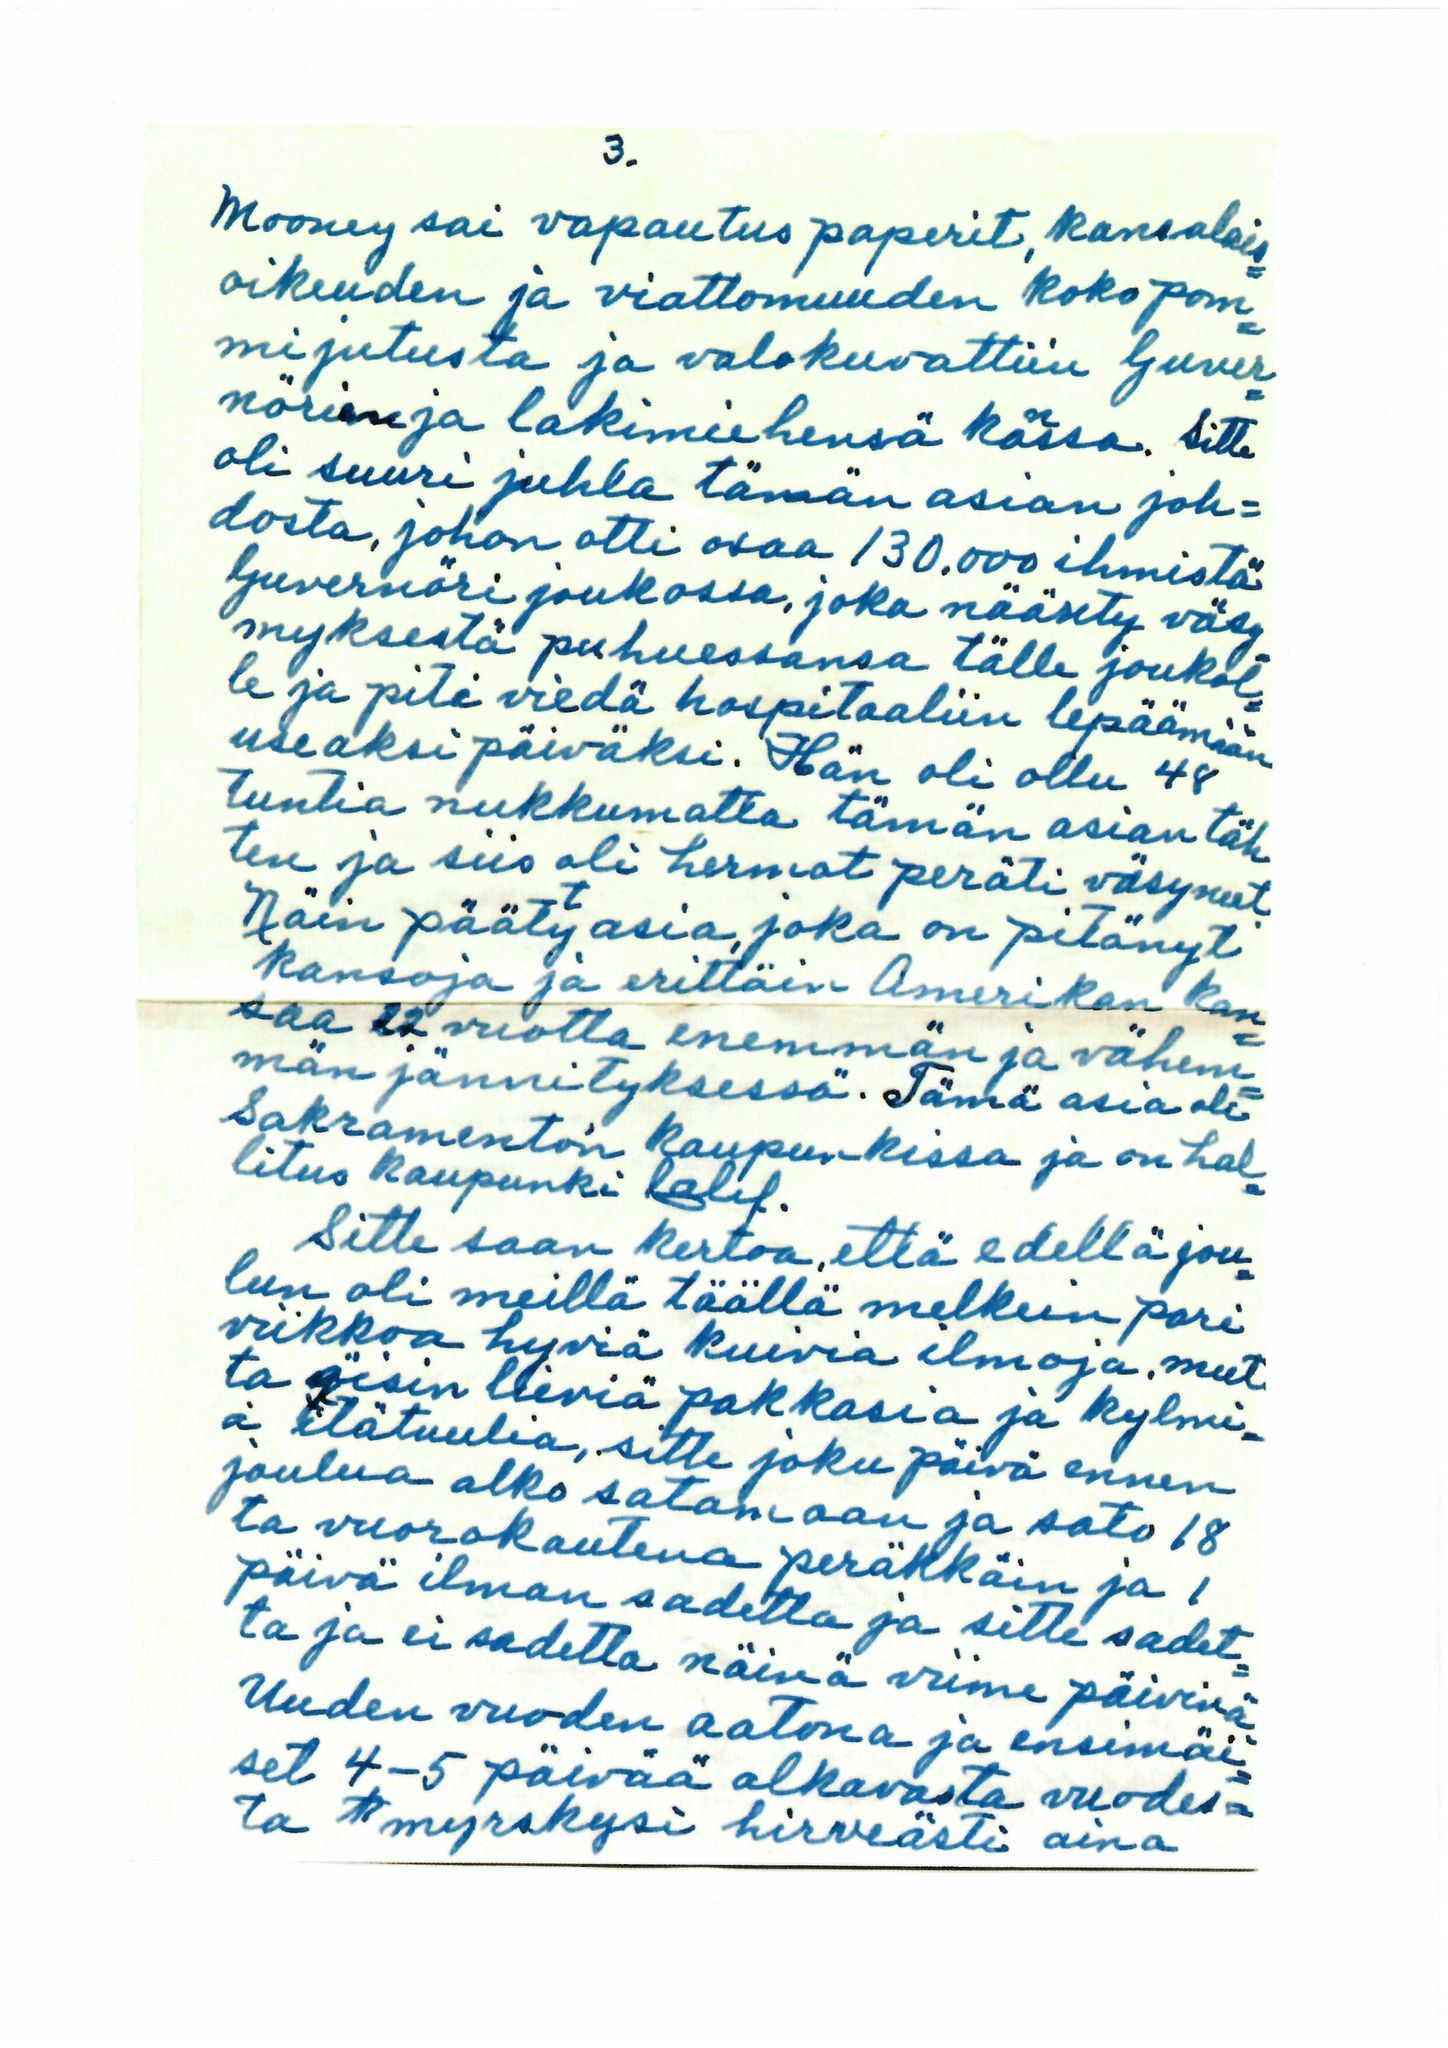 3.
Mooney sai vapautus paperit, kansalais=
oikeuden ja viattomuuden koko pom=
mijutusta ja valokuvattiin Guver=
nörin ja lakimiehensä kanssa. Sitte
oli suuri juhla tämän asian joh=
dosta, johon otti osaa 130.000 ihmistä
Guvernöri joukossa, joka näänty väsy=
myksestä puhuessansa tälle joukol=
le ja piti viedä hospitaaliin lepäämään
useaksi päiväksi. Hän oli ollu 48
tuntia nukkumatta tämän asian täh
ten ja siis oli hermot peräti väsyneet
Näin päätty asia, joka on pitänyt
kansoja ja erittäin Amerikan kan=
saa 22 vuotta enemmän ja vähem=
män jännityksessä. Tämä asia oli
Sakramenton kaupunkissa ja on hal=
litus kaupunki Calif.
Sitte saan kertoa, että edellä jou=
lun oli meillä täällä melkein pari
viikkoa hyviä kuivia ilmoja, mut
ta öisin lieviä pakkasia ja kylmi=
ä itätuulia, sitte joku päivä ennen
joulua alko satamaan ja sato 18
ta vuorokautena peräkkäin ja 1
päivä ilman sadetta ja sitte sadet=
ta ja ei sadetta näinä viime päivinä
Uuden vuoden aatona ja ensimäi=
set 4-5 päivää alkavasta vuodes=
ta myrskysi hirveästi aina